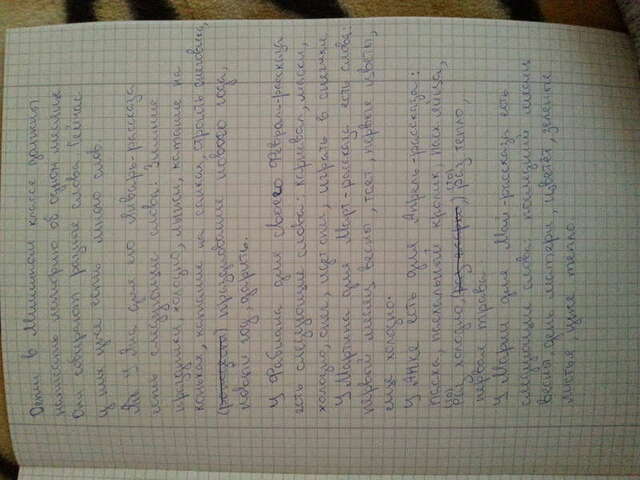 Дети в Мишином классе должны
написать историю об одном месяце
Они собирают разные слова. Сейчас
у них уже есть много слов.
У Яна для его Январь-рассказа
есть следующие слова: Зимние
праздники, холодно, лыжи, катание на
коньках, катание на санках, строить снеговика,
празднование нового года,
новый год, дарить.
У Фабиана для своего Февраль-рассказа
есть следующие слова: карнавал, маски,
холодно, снег, идёт снег, играть в снежки.
У Мартина для Март-рассказа есть слова:
первый месяц весны, тает, первые цветы,
ещё холодно.
У Анке есть для Апрель-рассказа:
пасха, пасхальный кролик, пасх. яйца,
(то) раз холодно, (то) раз тепло,
первая трава
У Марии для Май-рассказа есть
следующие слова: последний месяц
весны, день матери, цветёт, зеленые
листья, уже тепло.